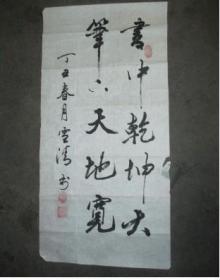 書中乾坤大
筆下天地寬
丁丑春月雪濤書